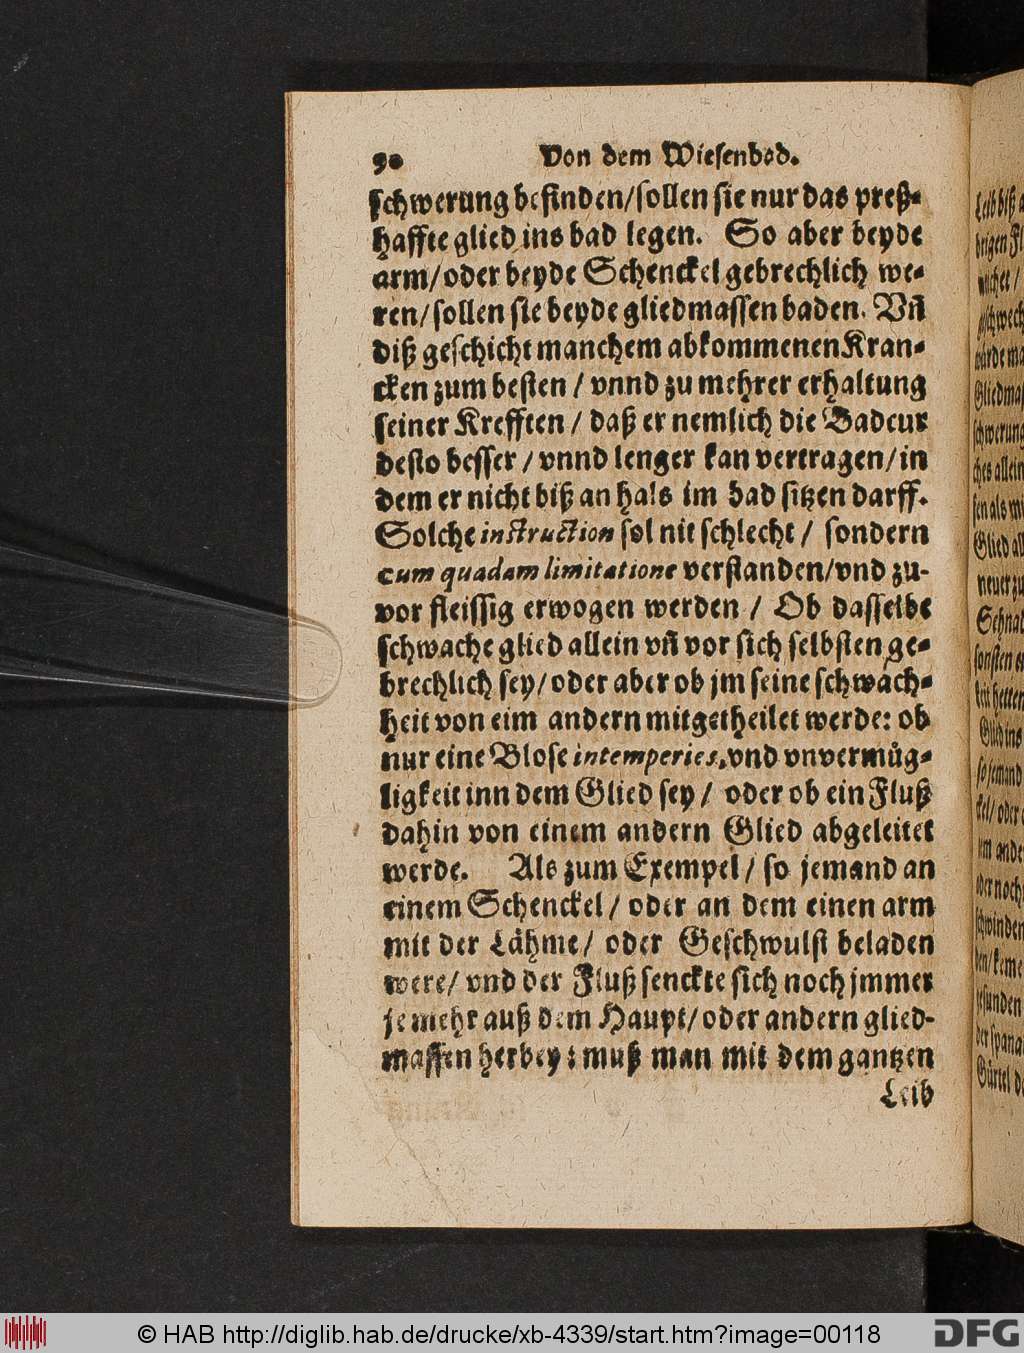 90 Von dem Wiesenbad.
schwerung befinden/sollen sie nur das preß-
haffte glied ins bad legen. So aber beyde
arm/oder beyde Schenckel gebrechlich we-
ren/sollen sie beyde gliedmassen baden. Vñ
diß geschicht manchem abkommenen Kran-
cken zum besten / vnnd zu mehrer erhaltung
seiner Krefften / daß er nemlich die Badcur
desto besser / vnnd lenger kan vertragen/in
dem er nicht biß an hals im bad sitzen darff.
Solche instruction sol nit schlecht / sondern
cum quadam limitatione verstanden/vnd zu-
vor fleissig erwogen werden / Ob dasselbe
schwache glied allein vñ vor sich selbsten ge-
brechlich sey/oder aber ob jm seine schwach-
heit von eim andern mitgetheilet werde: ob
nur eine Blose intemperies, vnd vnvermüg-
ligkeit inn dem Glied sey / oder ob ein Fluß
dahin von einem andern Glied abgeleitet
werde. Als zum Exempel / so jemand an
einem Schenckel / oder an dem einen arm
mit der Lähme / oder Geschwulst beladen
were/ vnd der Fluß senckte sich noch jmmer
je mehr auß dem Haupt/oder andern glied-
massen herbey: muß man mit dem gantzen
Leib
© HAB http://diglib.hab.de/drucke/xb-4339/start.htm?image=00118
DFG